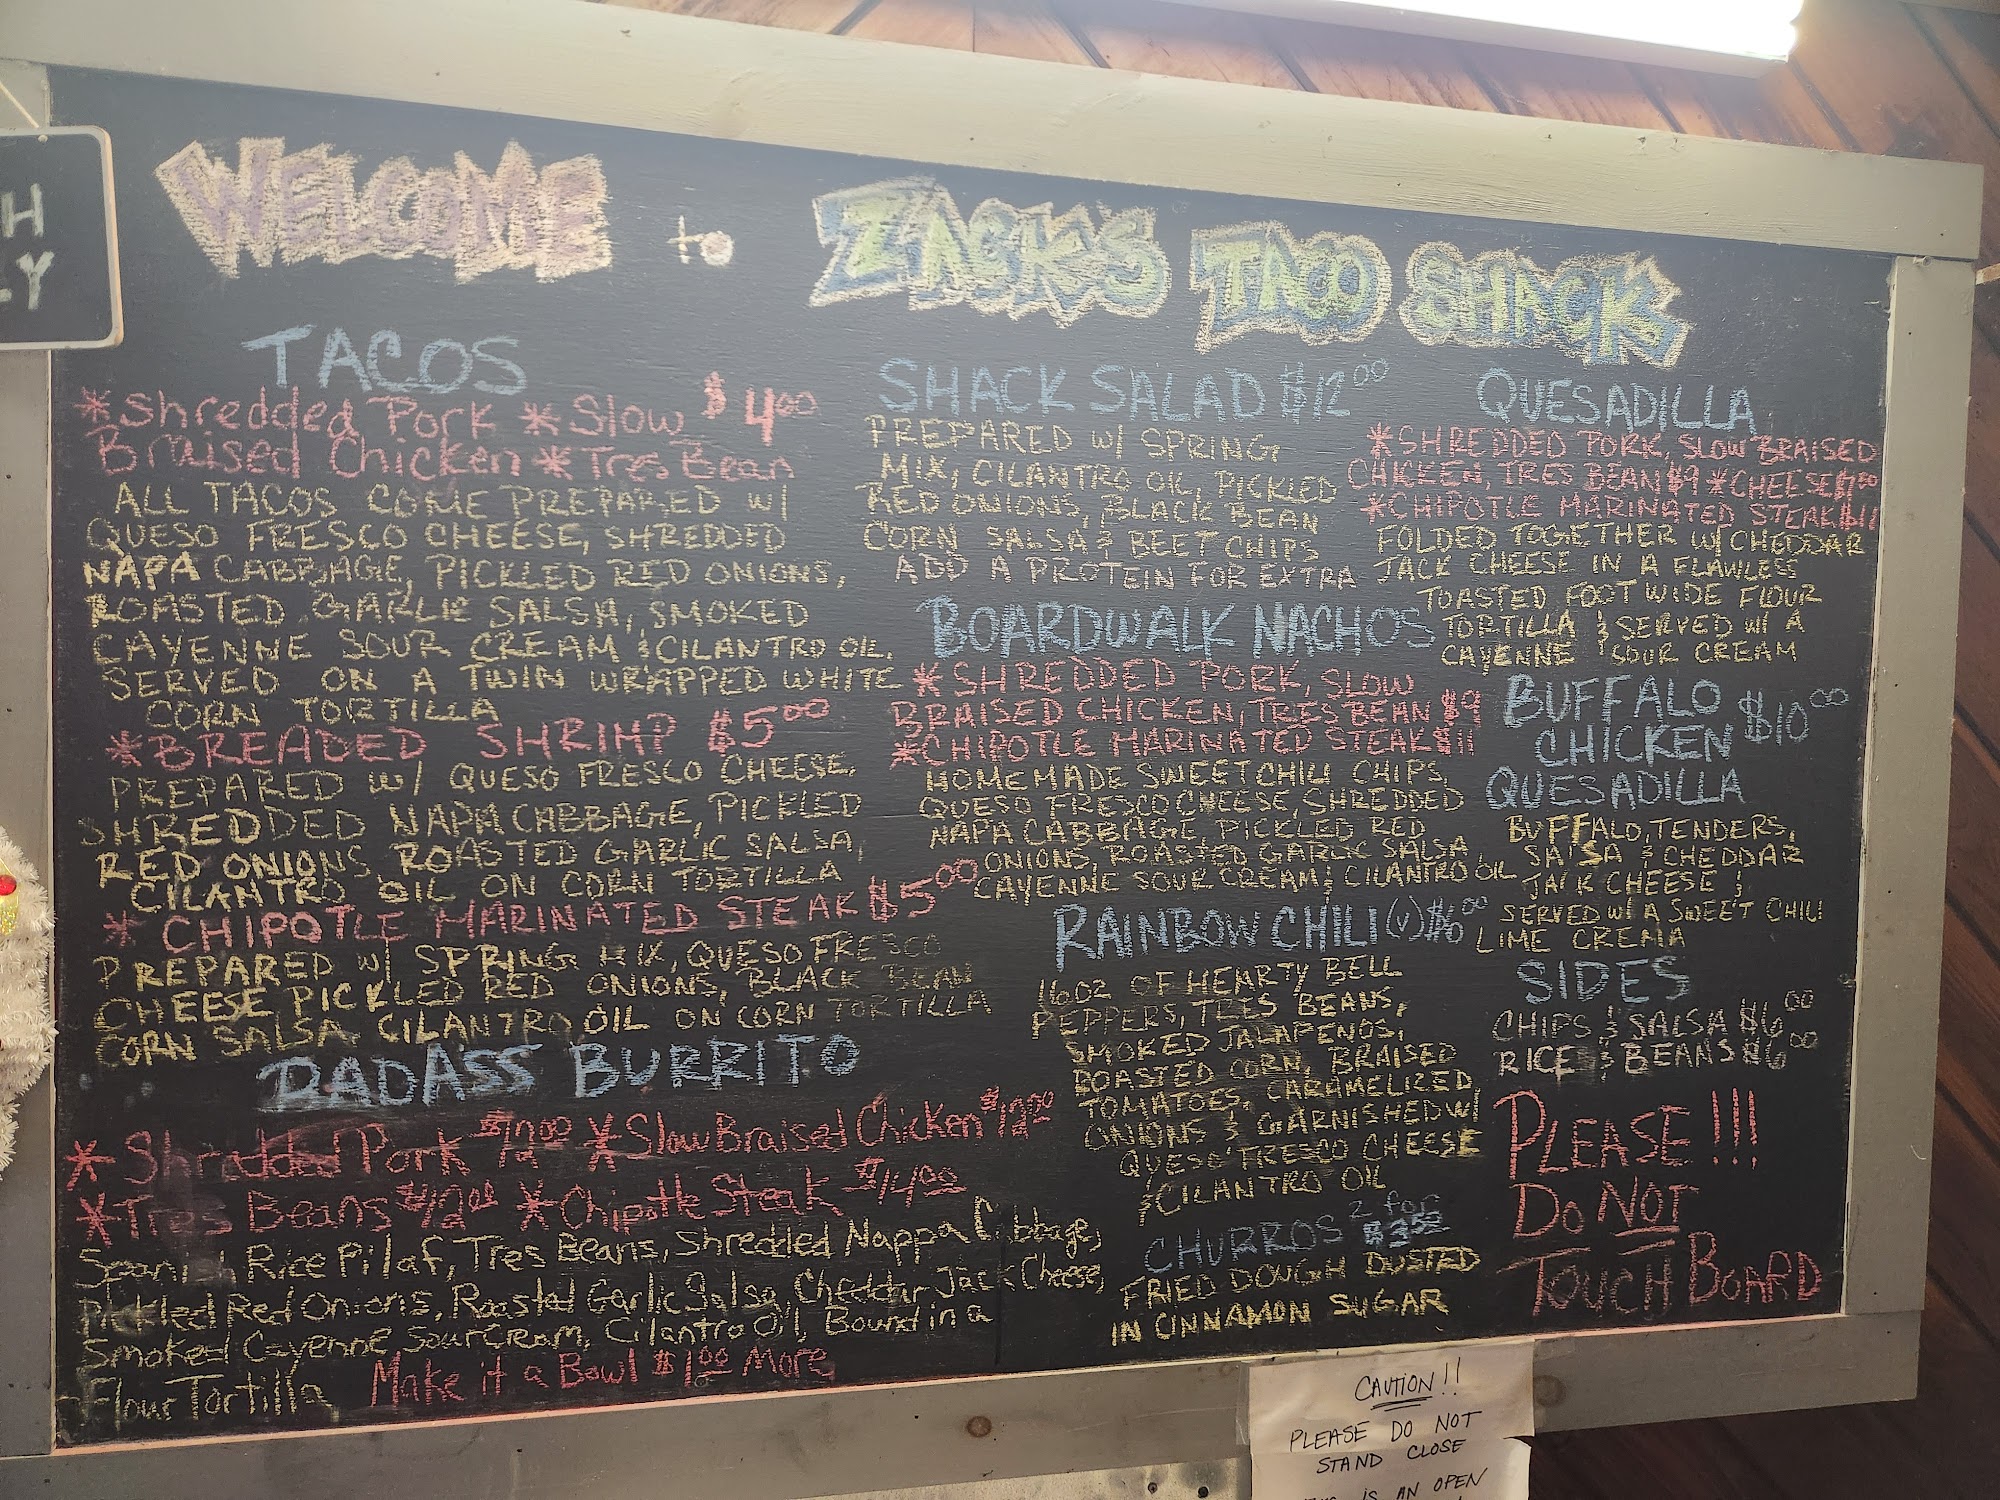 H
LY
WELCOME to ZACK'S TACO SHACK
TACOS
*Shredded Pork *Slow $4.00
Braised Chicken *Tres Bean
ALL TACOS COME PREPARED W/
QUESO FRESCO CHEESE, SHREDDED
NAPA CABBAGE, PICKLED RED ONIONS,
ROASTED GARLIC SALSA, SMOKED
CAYENNE SOUR CREAM & CILANTRO OIL,
SERVED ON A TWIN WRAPPED WHITE
CORN TORTILLA
*BREADED SHRIMP $5.00
PREPARED W/ QUESO FRESCO CHEESE,
SHREDDED NAPA CABBAGE, PICKLED
RED ONIONS, ROASTED GARLIC SALSA,
CILANTRO OIL ON CORN TORTILLA
* CHIPOTLE MARINATED STEAK $5.00
PREPARED W/ SPRING MIX, QUESO FRESCO
CHEESE PICKLED RED ONIONS, BLACK BEAN
CORN SALSA, CILANTRO OIL ON CORN TORTILLA
BADASS BURRITO
*Shredded Pork $12.00 *Slow Braised Chicken $12.00
*Tres Beans $12.00 *Chipotle Steak $14.00
Spanish Rice Pilaf, Tres Beans, Shredded Nappa Cabbage,
Pickled Red Onions, Roasted Garlic Salsa, Cheddar Jack Cheese,
Smoked Cayenne Sour Cream, Cilantro Oil, Bound in a
Flour Tortilla Make it a Bowl $1.00 More
SHACK SALAD $12.00
PREPARED W/ SPRING
MIX, CILANTRO OIL, PICKLED
RED ONIONS, BLACK BEAN
CORN SALSA & BEET CHIPS
ADD A PROTEIN FOR EXTRA
BOARDWALK NACHOS
*SHREDDED PORK, SLOW
BRAISED CHICKEN, TRES BEAN $9
*CHIPOTLE MARINATED STEAK $11
HOMEMADE SWEET CHILI CHIPS,
QUESO FRESCO CHEESE, SHREDDED
NAPA CABBAGE, PICKLED RED
ONIONS, ROASTED GARLIC SALSA
CAYENNE SOUR CREAM & CILANTRO OIL
RAINBOW CHILI (V) $6.00
16OZ OF HEARTY BELL
PEPPERS, TRES BEANS,
SMOKED JALAPENOS,
ROASTED CORN, BRAISED
TOMATOES, CARAMELIZED
ONIONS & GARNISHED W/
QUESO FRESCO CHEESE
& CILANTRO OIL
CHURROS 2 for
FRIED DOUGH DUSTED
IN CINNAMON SUGAR
QUESADILLA
*SHREDDED PORK, SLOW BRAISED
CHICKEN, TRES BEAN $9 *CHEESE $7.00
*CHIPOTLE MARINATED STEAK $11
FOLDED TOGETHER W/ CHEDDAR
JACK CHEESE IN A FLAWLESS
TOASTED FOOT WIDE FLOUR
TORTILLA & SERVED W/ A
CAYENNE SOUR CREAM
BUFFALO $10.00
CHICKEN
QUESADILLA
BUFFALO, TENDERS,
SALSA & CHEDDAR
JACK CHEESE &
SERVED W/ A SWEET CHILI
LIME CREMA
SIDES
CHIPS & SALSA $6.00
RICE & BEANS $6.00
PLEASE!!!
DO NOT
TOUCH BOARD
CAUTION!!
PLEASE DO NOT
STAND CLOSE
IS AN OPEN